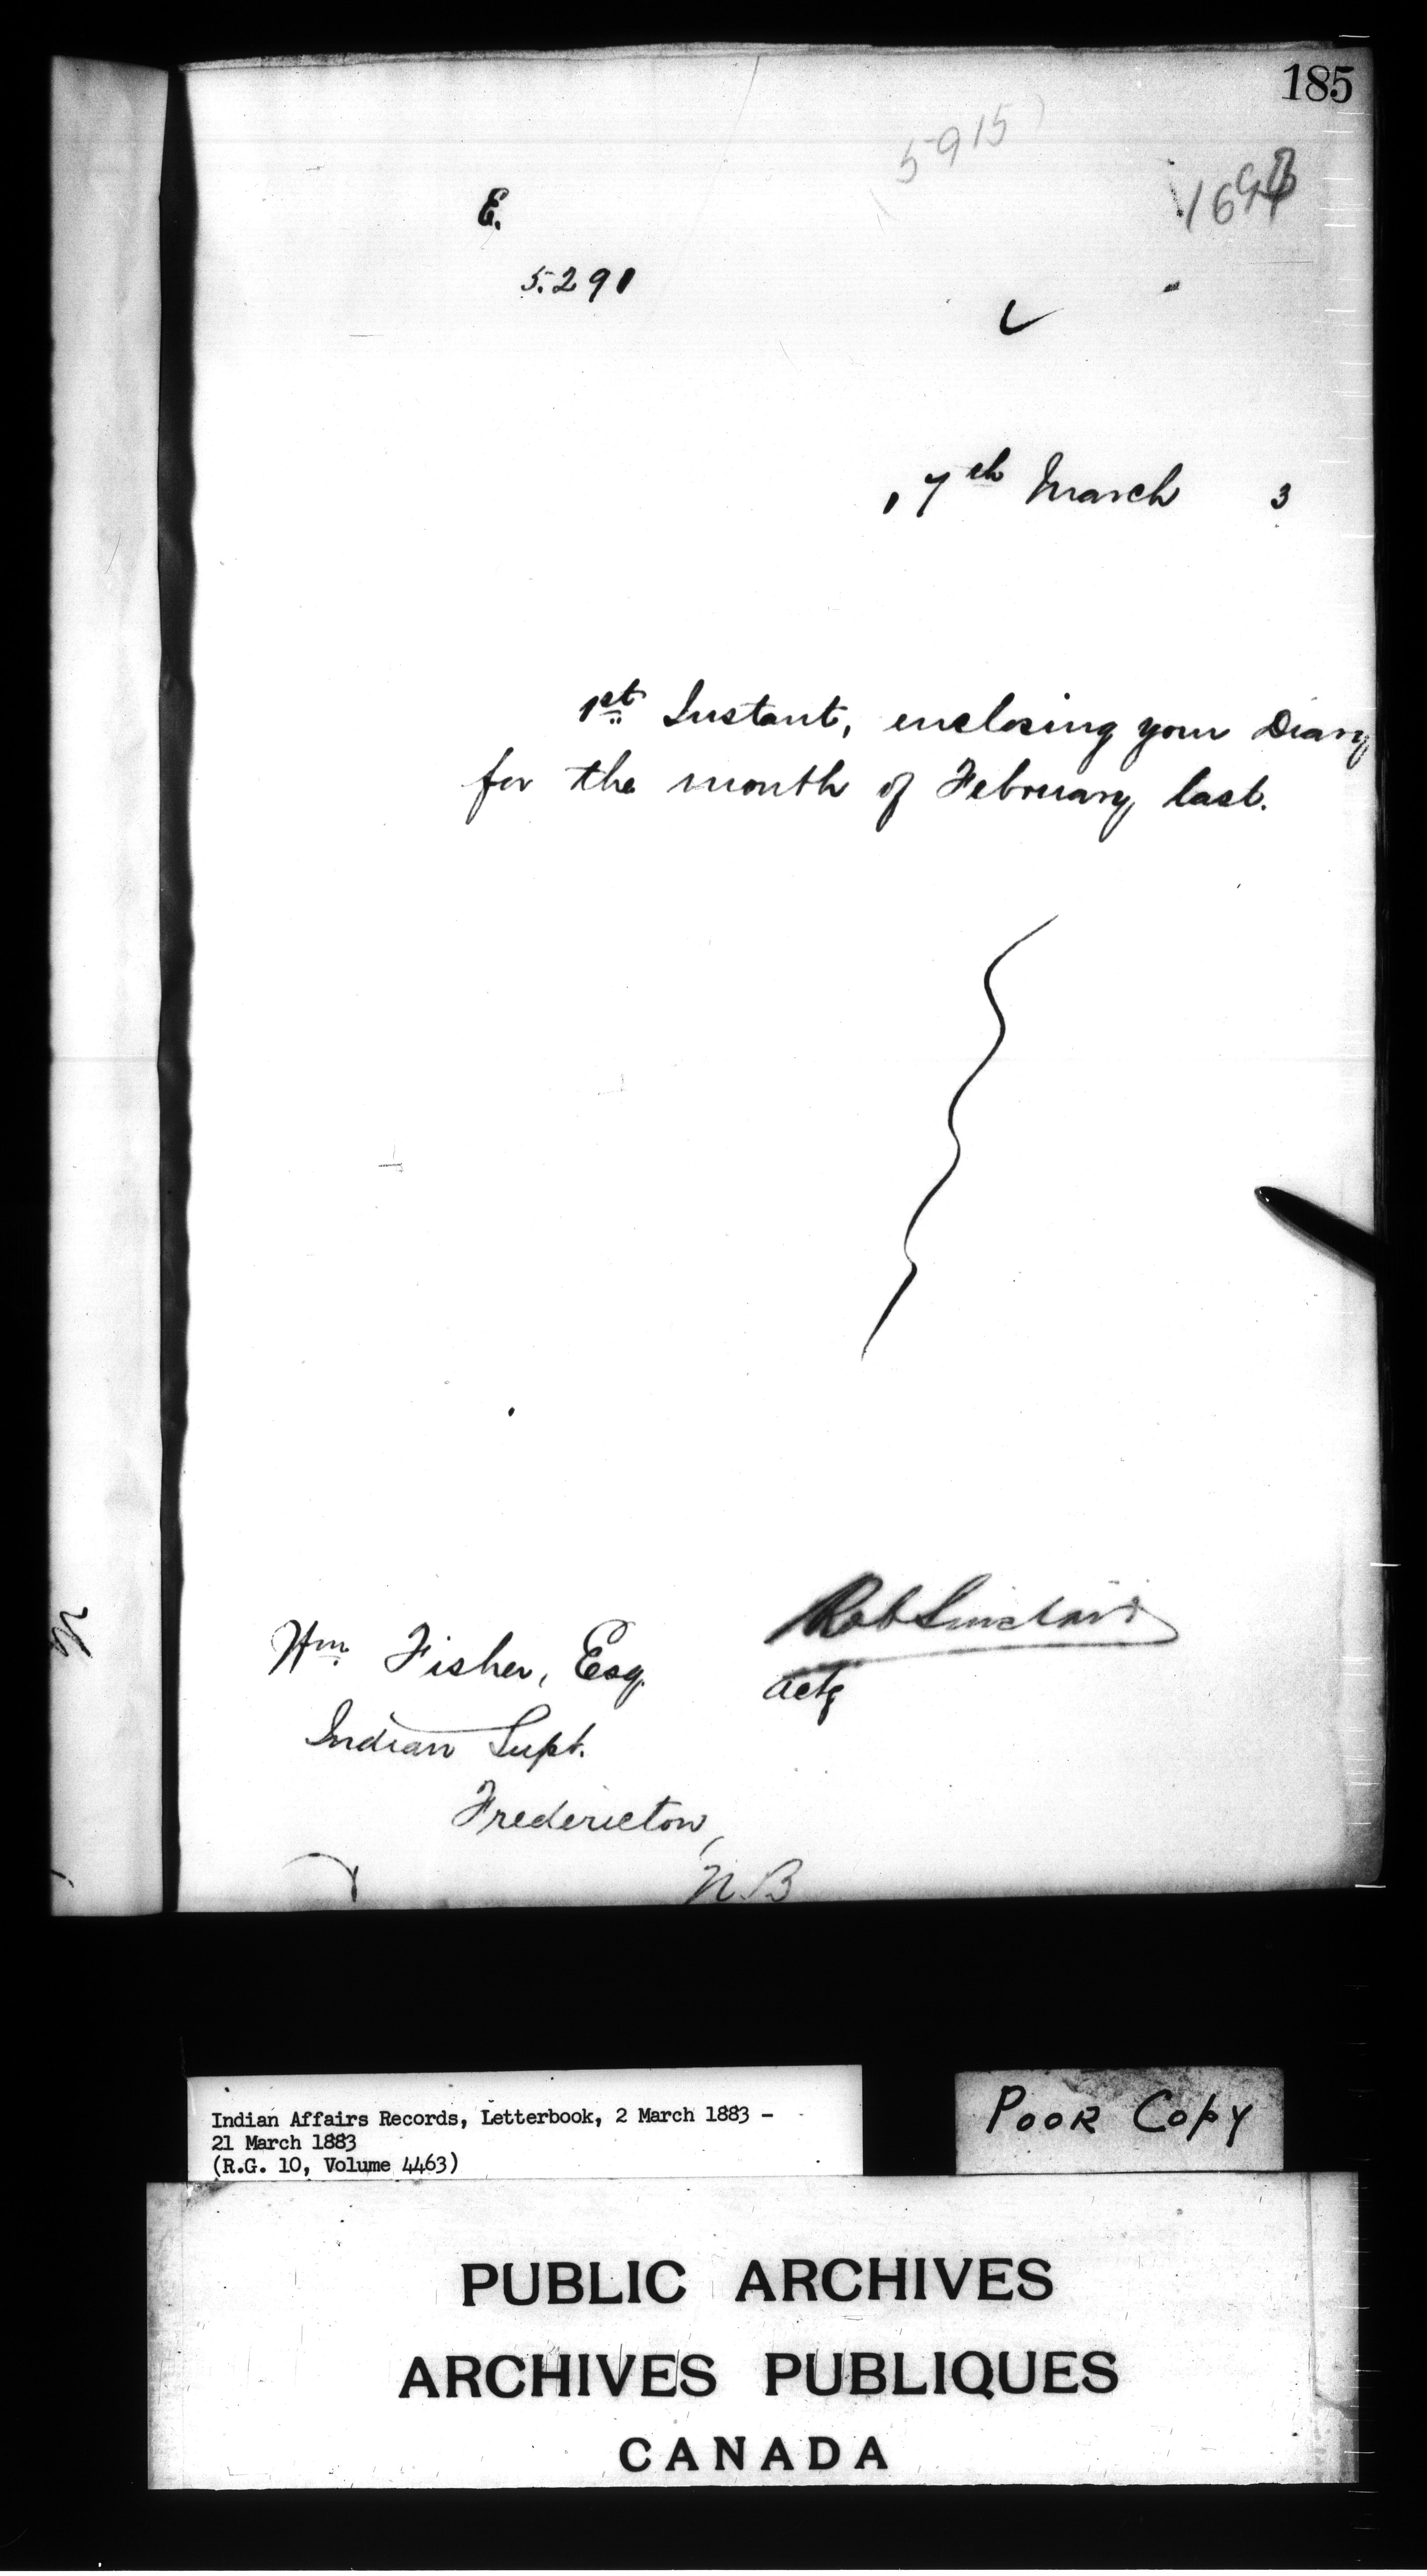 185
5915
E.
5291
7th March 3
1st Instant, enclosing your Diary
for the month of February last.
Rob Sinclair
Wm. Fisher, Esq.
actg
Indian Supt.
Fredericton,
N.B
Indian Affairs Records, Letterbook, 2 March 1883 -
21 March 1883
(R.G. 10, Volume 4463)
POOR COPY
PUBLIC ARCHIVES
ARCHIVES PUBLIQUES
CANADA